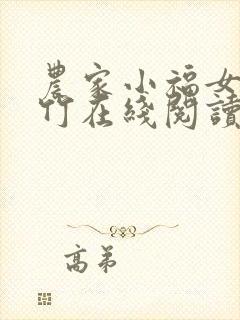 農家小福女
竹在綫閱讀
高弟